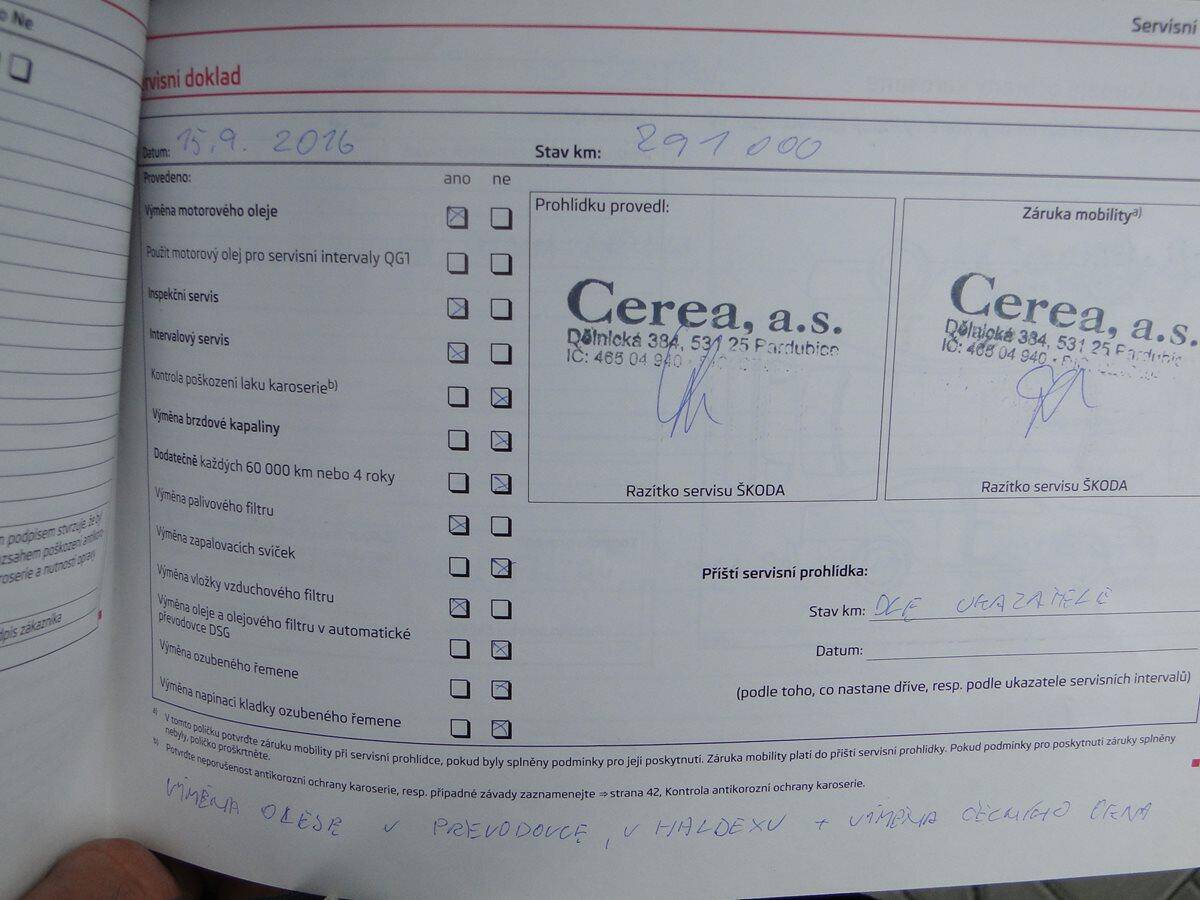 o Ne
Servisní
ervisní doklad
Datum: 15.9. 2016
Stav km: 291 000
Provedeno:
ano ne
Výměna motorového oleje
Použit motorový olej pro servisní intervaly QG1
Inspekční servis
Intervalový servis
Kontrola poškození laku karoserie b)
Výměna brzdové kapaliny
Dodatečně každých 60 000 km nebo 4 roky
Výměna palivového filtru
Výměna zapalovacích svíček
Výměna vložky vzduchového filtru
Výměna oleje a olejového filtru v automatické
převodovce DSG
Výměna ozubeného řemene
Výměna napínací kladky ozubeného řemene
Prohlídku provedl:
Cerea, a.s.
Dělnická 384, 531 25 Pardubice
IČ: 465 04 940
Razítko servisu ŠKODA
Záruka mobility a)
Cerea, a.s.
Dělnická 384, 531 25 Pardubic
IČ: 465 04 940
Razítko servisu ŠKODA
Příští servisní prohlídka:
Stav km: DLE UKAZATELE
Datum:
(podle toho, co nastane dříve, resp. podle ukazatele servisních intervalů)
a) V tomto políčku potvrďte záruku mobility při servisní prohlídce, pokud byly splněny podmínky pro její poskytnutí. Záruka mobility platí do příští servisní prohlídky. Pokud podmínky pro poskytnutí záruky splněny
nebyly, políčko proškrtněte.
b) Potvrďte neporušenost antikorozní ochrany karoserie, resp. případné závady zaznamenejte ⇒ strana 42, Kontrola antikorozní ochrany karoserie.
VÝMĚNA OLEJE V PŘEVODOVCE, V HALDEXU + VÝMĚNA ČELNÍHO OKNA
m podpisem stvrzuje, že byl
ozsahem poškození antikoro
roserie a nutností opravy
dpis zákazníka